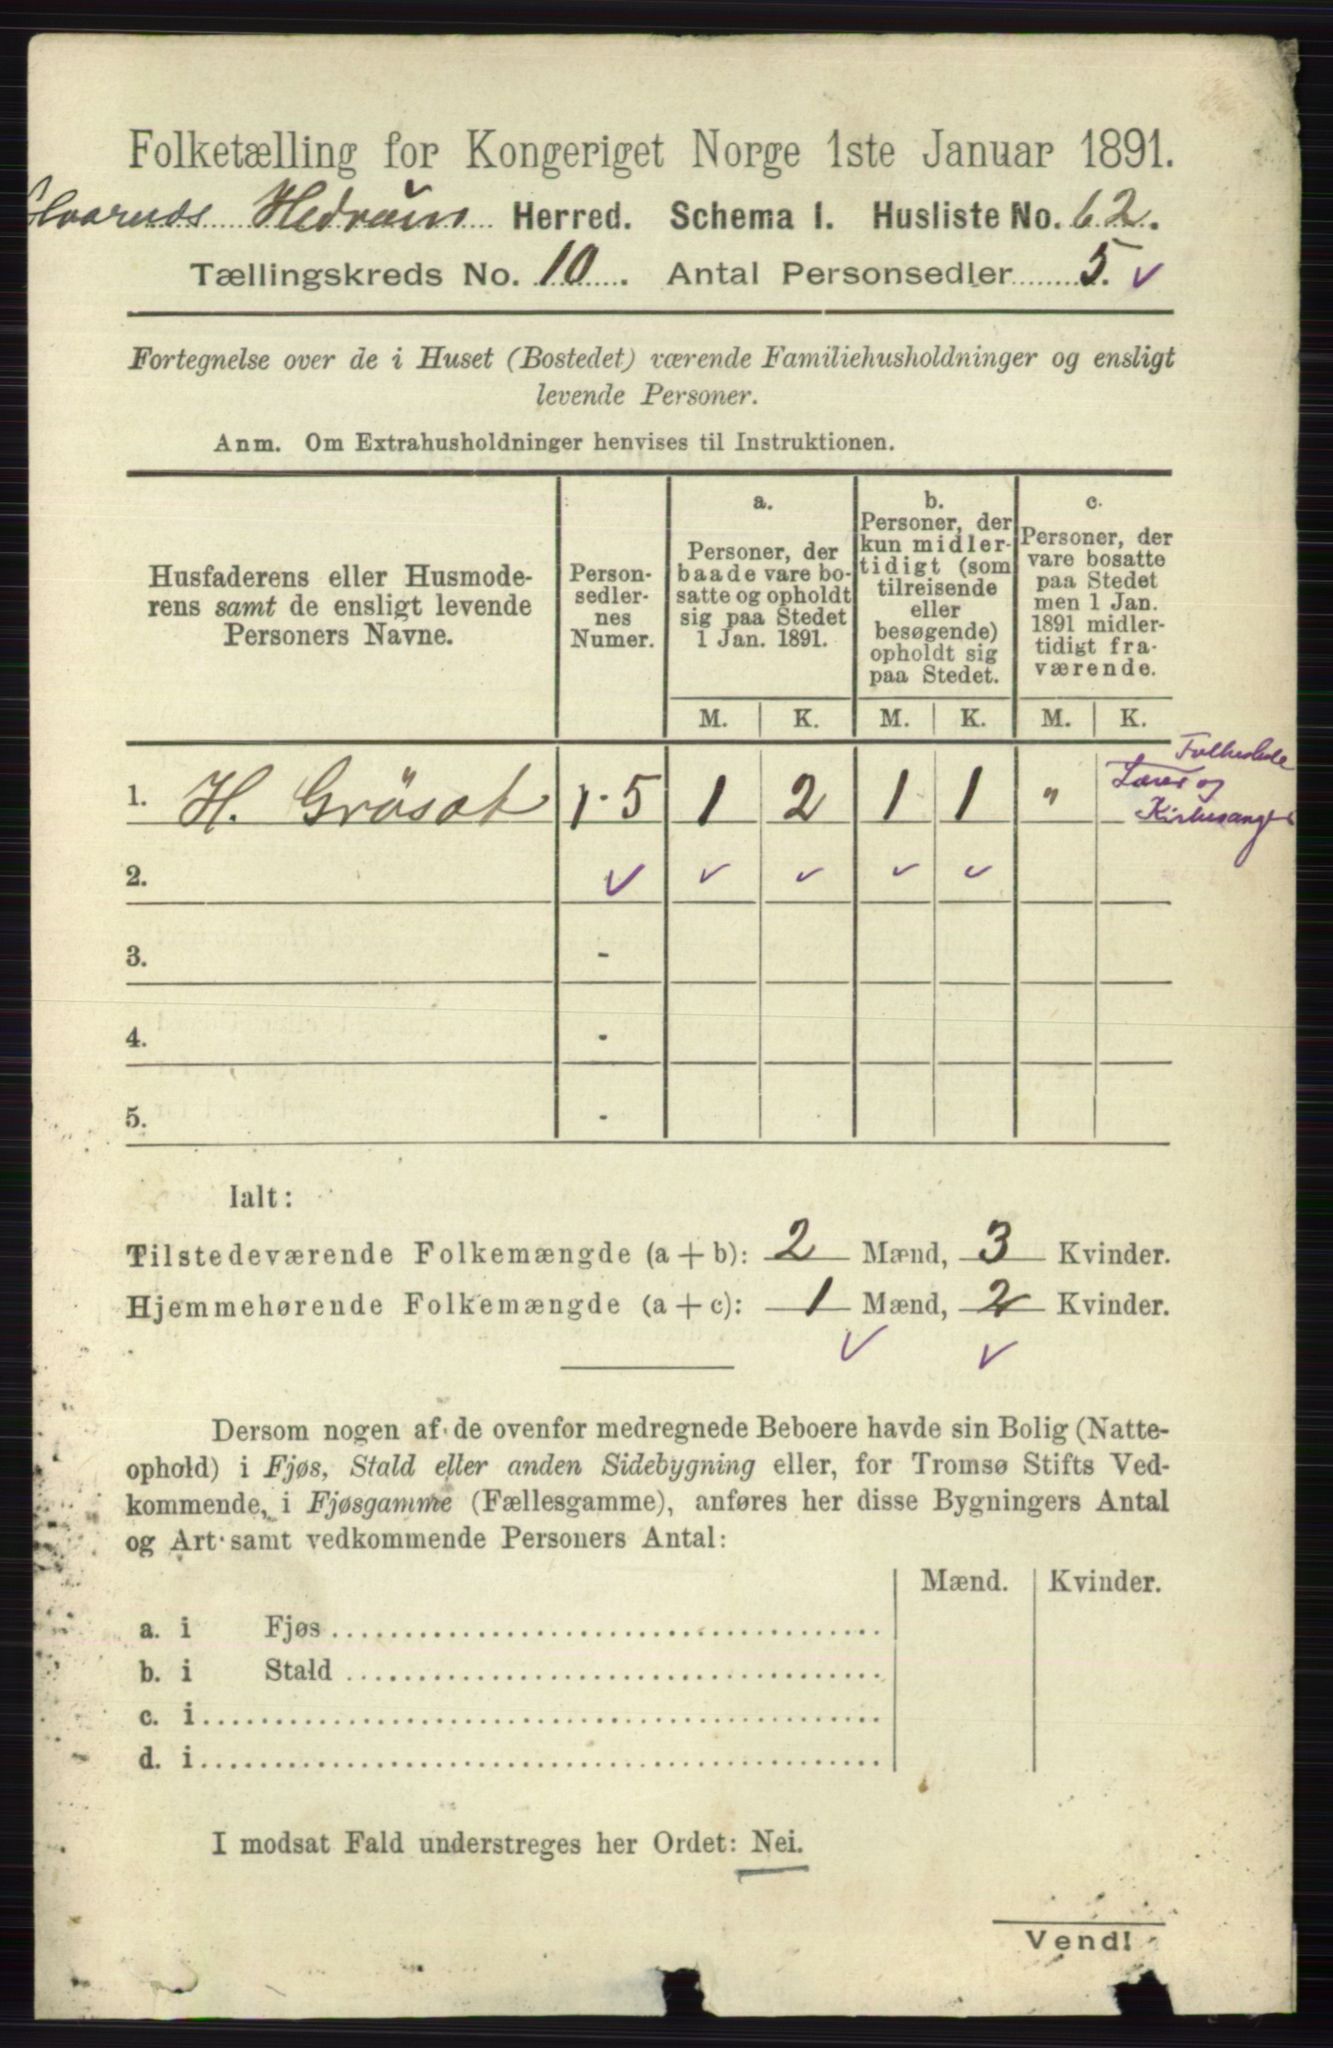 Folketælling for Kongeriget Norge 1ste Januar 1891.
Hedrum Herred. Schema I. Husliste No. 62.
Tællingskreds No. 10. Antal Personsedler 5. ✓
Fortegnelse over de i Huset (Bostedet) værende Familiehusholdninger og ensligt
levende Personer.
Anm. Om Extrahusholdninger henvises til Instruktionen.
Husfaderens eller Husmode-
rens samt de ensligt levende
Personers Navne.
Person-
sedler-
nes
Numer.
a.
Personer, der
baade vare bo-
satte og opholdt
sig paa Stedet
1 Jan. 1891.
b.
Personer, der
kun midler-
tidigt (som
tilreisende
eller
besøgende)
opholdt sig
paa Stedet.
c.
Personer, der
vare bosatte
paa Stedet
men 1 Jan.
1891 midler-
tidigt fra-
værende.
M. K. M. K. M. K.
1. H. Gröset 1-5 1 2 1 1 "
Folkeskole
Lærer og
Kirkesanger
2. ✓ ✓ ✓ ✓ ✓
3. -
4. -
5. -
Ialt:
Tilstedeværende Folkemængde (a + b): 2 Mænd, 3 Kvinder.
Hjemmehørende Folkemængde (a + c): 1 Mænd, 2 Kvinder.
✓ ✓
Dersom nogen af de ovenfor medregnede Beboere havde sin Bolig (Natte-
ophold) i Fjøs, Stald eller anden Sidebygning eller, for Tromsø Stifts Ved-
kommende, i Fjøsgamme (Fællesgamme), anføres her disse Bygningers Antal
og Art samt vedkommende Personers Antal:
Mænd. Kvinder.
a. i Fjøs
b. i Stald
c. i
d. i
I modsat Fald understreges her Ordet: Nei.
Vend!